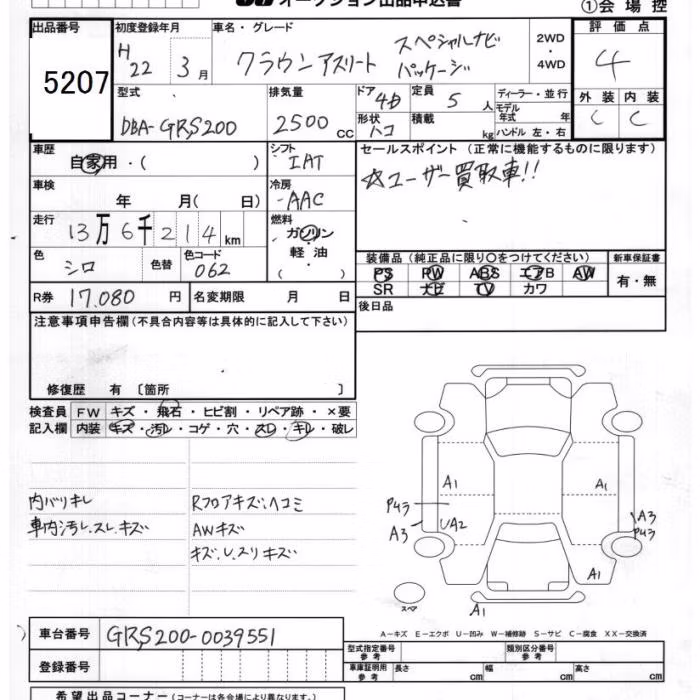 オークション出品申込書
①会場控
出品番号 初度登録年月 車名・グレード 2WD・4WD 評価点
5207 H22 3月 クラウンアスリート スペシャルナビパッケージ 4
型式 排気量 ドア 4D 定員 5人 ディーラー・並行 外装 内装
DBA-GRS200 2500cc 形状 ハコ 積載 kg モデル年式 年 ハンドル 左・右 C C
車歴 自家用・( ) シフト IAT セールスポイント(正常に機能するものに限ります)
車検 年 月( 日) 冷房 AAC ☆ユーザー買取車!!
走行 13万6千214km 燃料 ガソリン・軽油・( )
色 シロ 色替 色コード 062 装備品(純正品に限り〇をつけてください) 新車保証書
PS PW ABS エアB AW 有・無
SR ナビ TV カワ
R券 17.080円 名変期限 月 日 後日品
注意事項申告欄(不具合内容等は具体的に記入して下さい)
修復歴 有〔箇所 〕
検査員 FW キズ・飛石・ヒビ割・リペア跡・×要
記入欄 内装 キズ・汚レ・コゲ・穴・スレ・キレ・破レ
内バリキレ Rフロアキズ、ヘコミ
車内汚レ、スレ、キズ AWキズ
A1 A1
P43 A3 UA2 A3 P43
A1
スペア A1
A−キズ E−エクボ U−凹み W−補修跡 S−サビ C−腐食 XX−交換済
車台番号 GRS200-0039551
登録番号
型式指定番号 参考 類別区分番号 参考
車庫証明用 参考 長さ cm 幅 cm 高さ cm
希望出品コーナー(コーナーは各会場により異なります。)